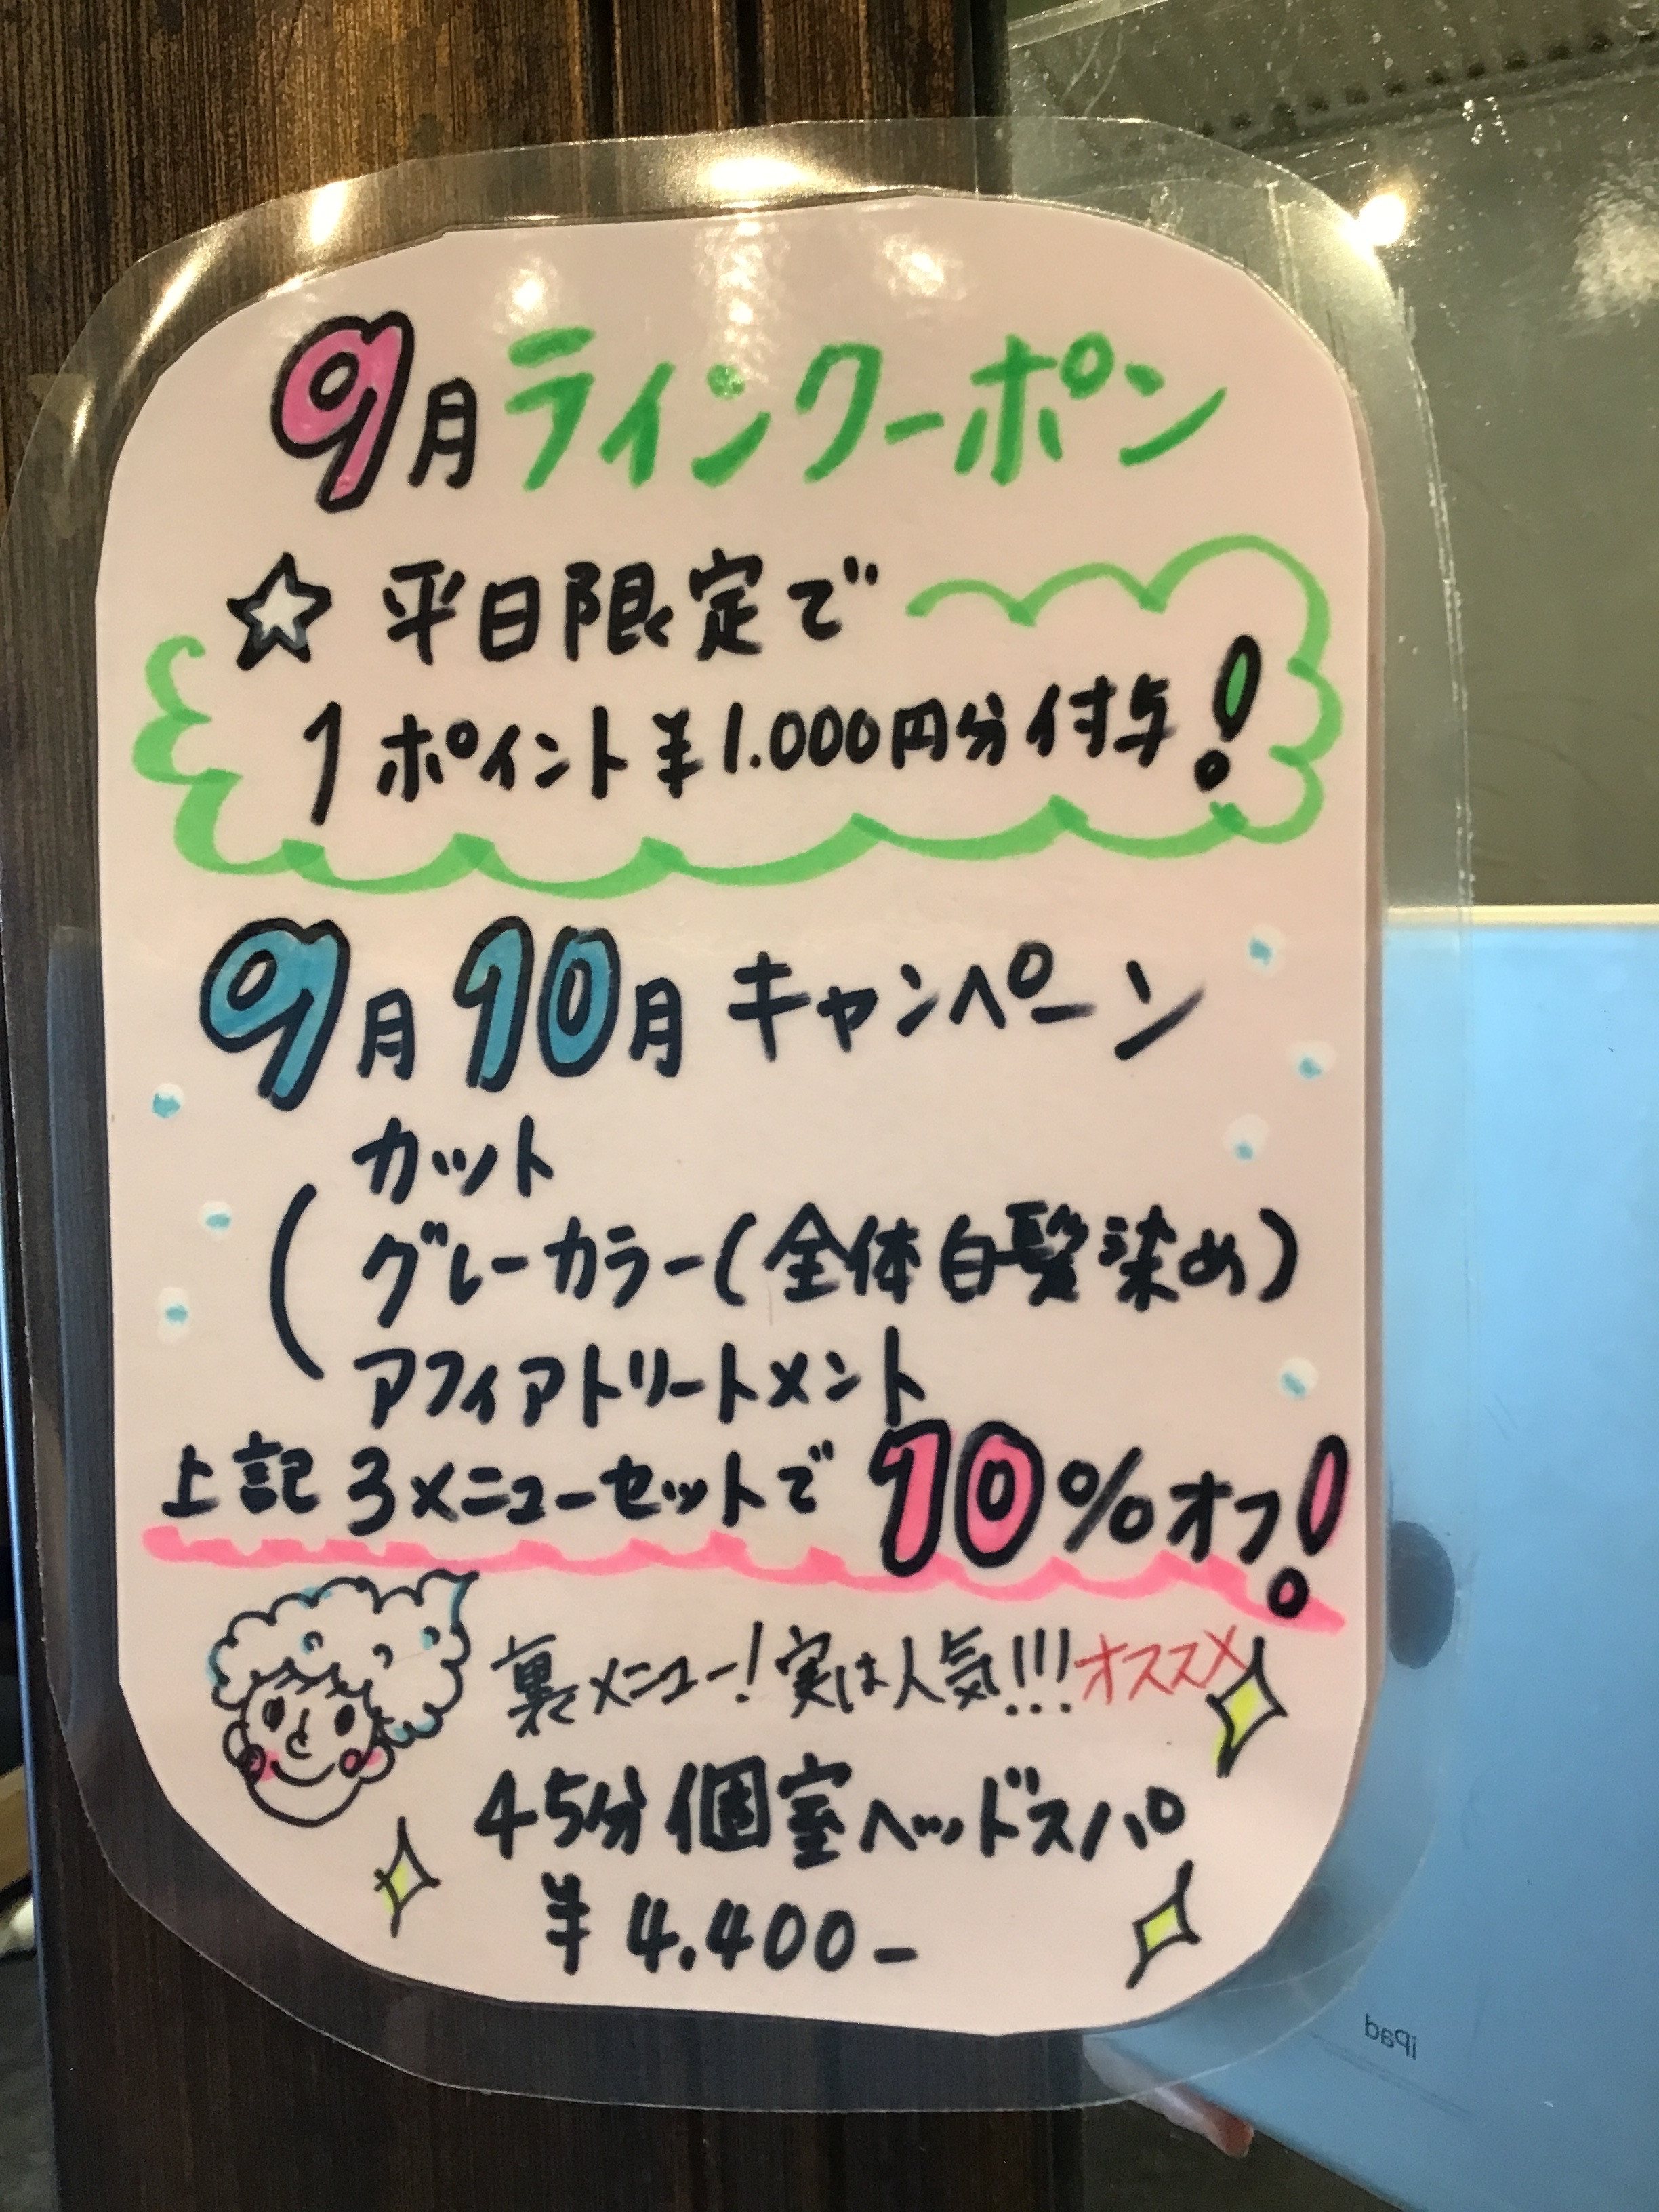 9月ラインクーポン
☆ 平日限定で
1ポイント¥1.000円分付与!
9月10月キャンペーン
カット
グレーカラー(全体白髪染め)
アフィアトリートメント
上記3メニューセットで10%オフ!
裏メニュー!実は人気!!!オススメ
45分個室ヘッドスパ
¥4.400-
iPad